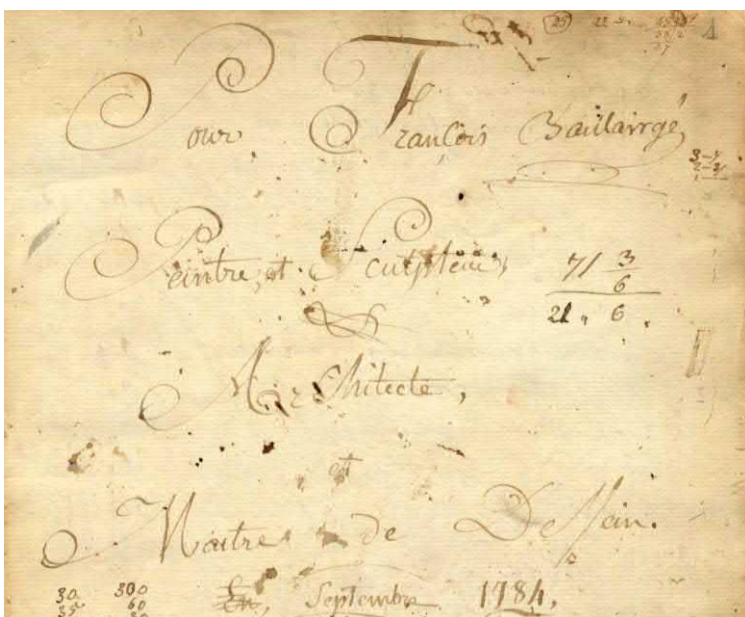 25 22
Pour François Baillairgé
Peintre, et Sculpteur,
71 3
6
21 , 6 ,
Architecte,
et
Maitre de Dessein.
30 300
35 60
30
En, Septembre 1784,